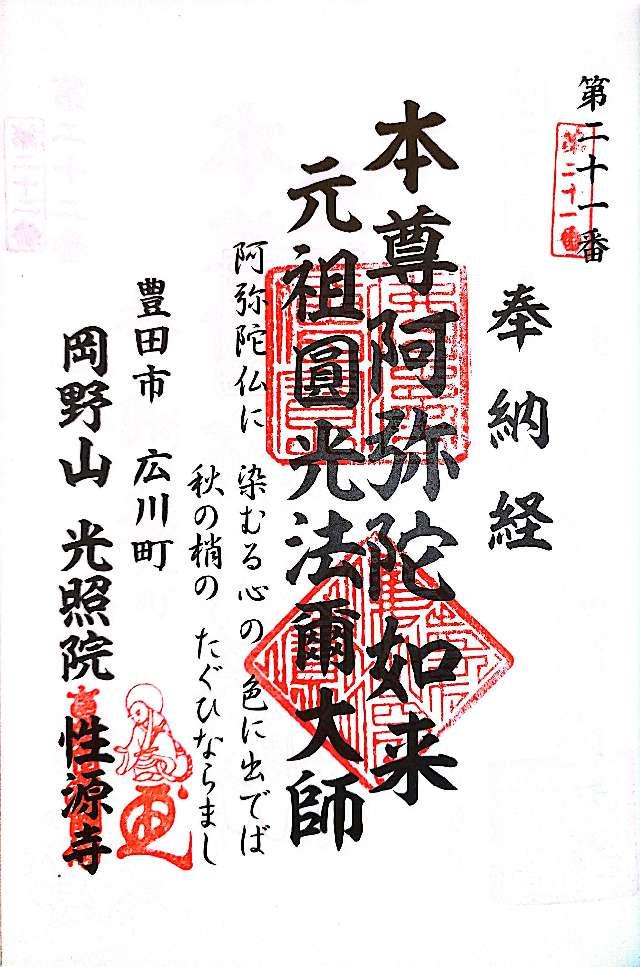 第二十一番
第二十一番
奉納経
本尊阿弥陀如来
元祖圓光法爾大師
阿弥陀仏に 染むる心の 色に出でば
秋の梢の たぐひならまし
豊田市 広川町
岡野山 光照院 性源寺